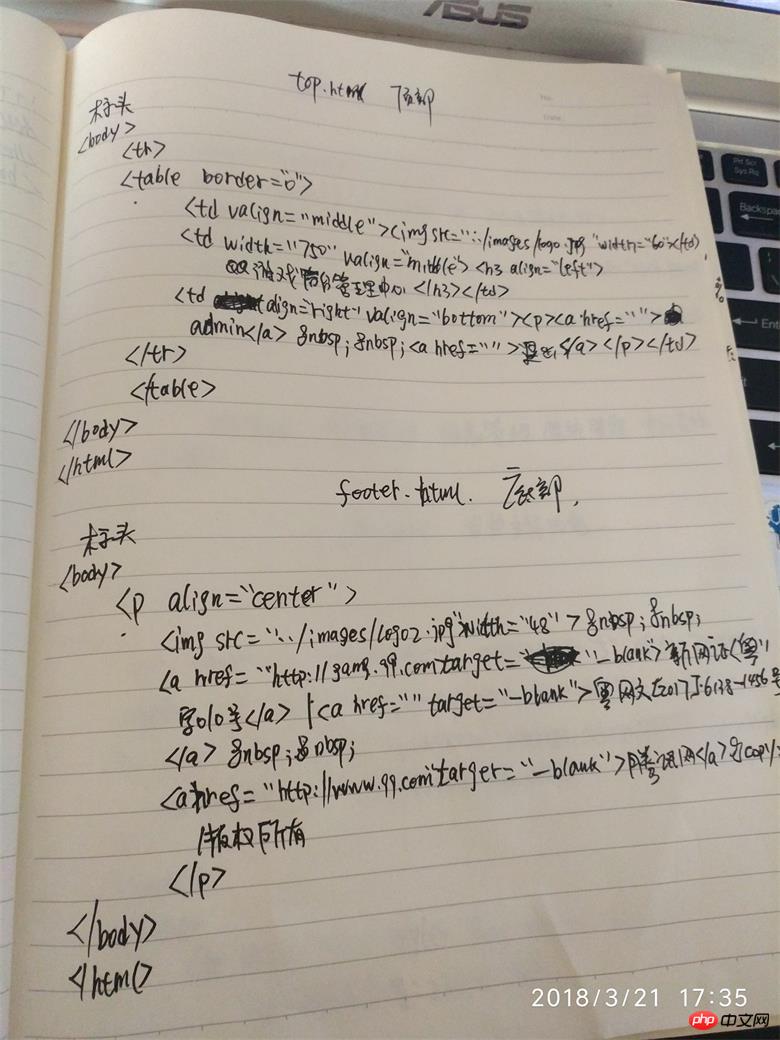 ASUS
top.html 顶部
标头
<body>
<tr>
<table border="0">
<td valign="middle"><img src="../images/logo.jpg "width="60"></td>
<td width="750" valign="middle"> <h3 align="left">
QQ游戏后台管理中心 </h3></td>
<td align="right" valign="bottom"><p><a href="">
admin</a> &nbsp; &nbsp; <a href="" >退出</a></p></td>
</tr>
</table>
</body>
</html>
footer.html. 底部.
标头
<body>
<p align="center">
<img src="../images/logo2.jpg" width="48" > &nbsp; &nbsp;
<a href="http://gamg.qq.com target="_blank">新网证(粤)
字010号</a> |<a href="" target="_blank">粤网文[2017]6138-1456号
</a> &nbsp; &nbsp;
<a href="http://www.qq.com" target="_blank">腾讯网</a>&copy;
版权所有
</p>
</body>
</html>
Prt Sc
Sys Rq
Backspace
Enter
2018/3/21 17:35
php 中文网